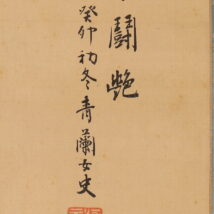 鬪艷
癸卯初冬青蘭女史